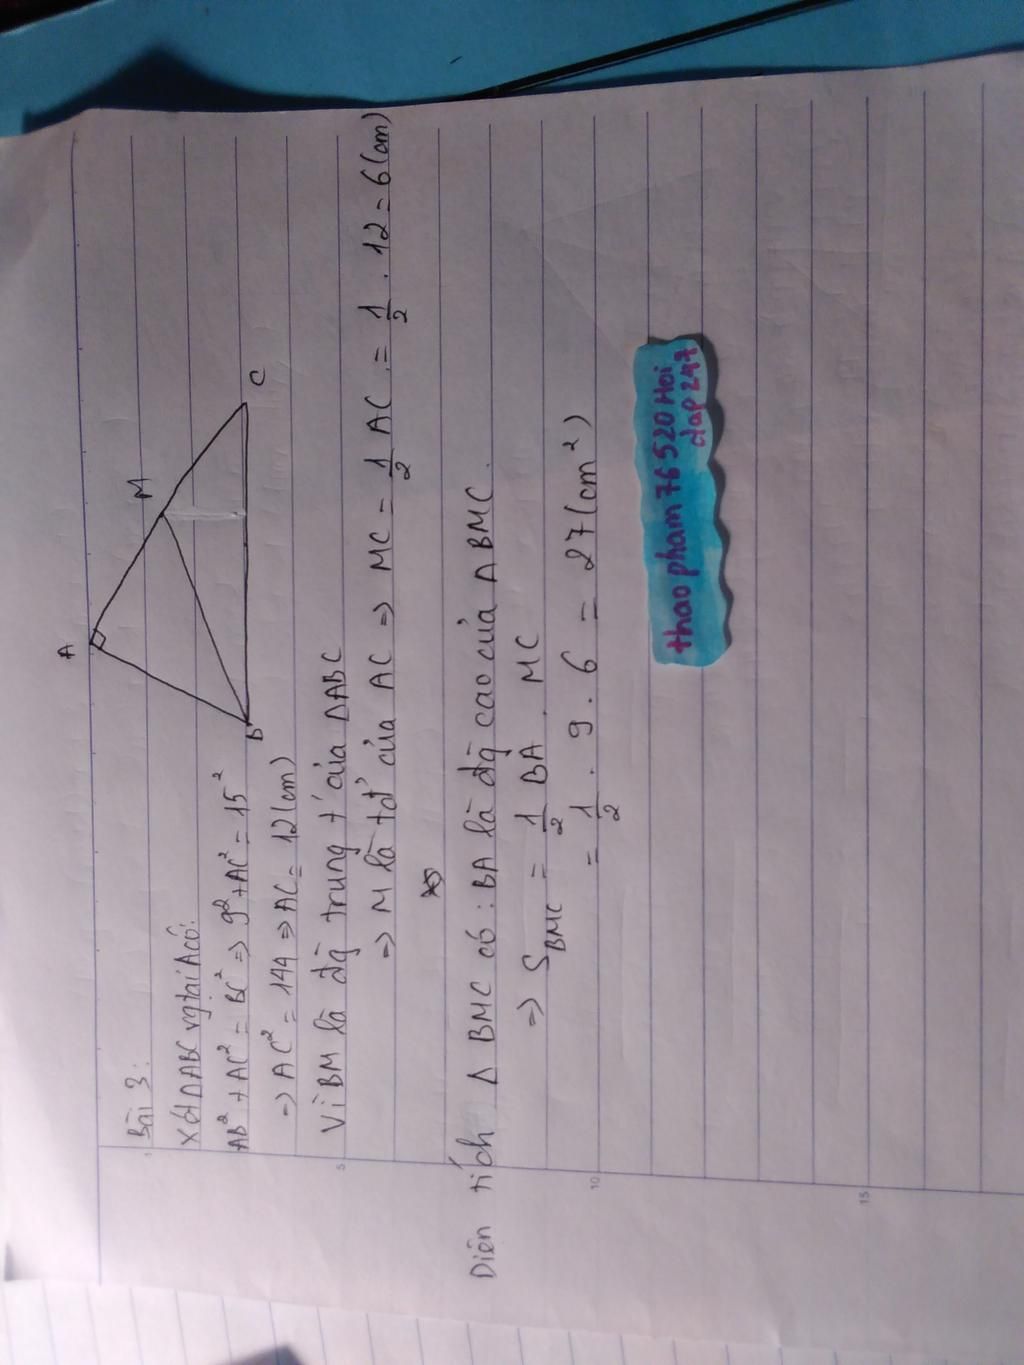 Bài 3:
Xét ΔABC vg tại A có:
AB² + AC² = BC² => 9² + AC² = 15²
=> AC² = 144 => AC = 12 (cm)
Vì BM là đg trung t' của ΔABC
=> M là tđ' của AC => MC = 1/2 AC = 1/2 . 12 = 6 (cm)
Diện tích Δ BMC có : BA là đg cao của Δ BMC.
=> S BMC = 1/2 BA . MC
= 1/2 . 9 . 6 = 27 (cm²)
A
M
B
C
thao pham 76520 Hoi
dap 247
5
10
15